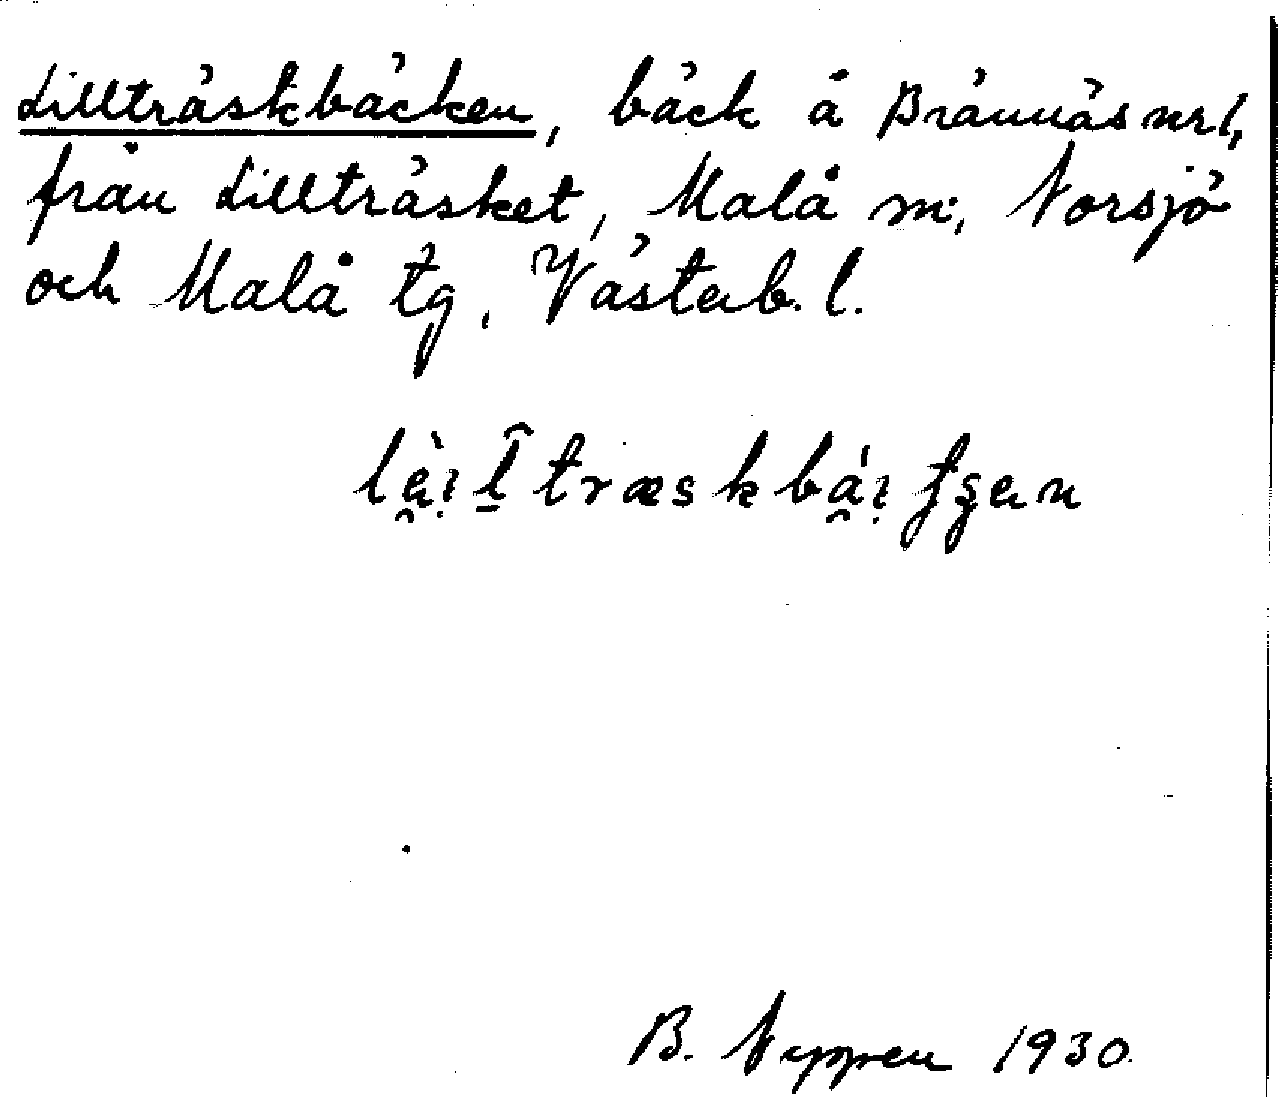 Lillträskbäcken, bäck å Brännäs nr 1,
från Lillträsket, Malå m., Norsjö
och Malå tg, Västerb. l.
B. Nyppen 1930.